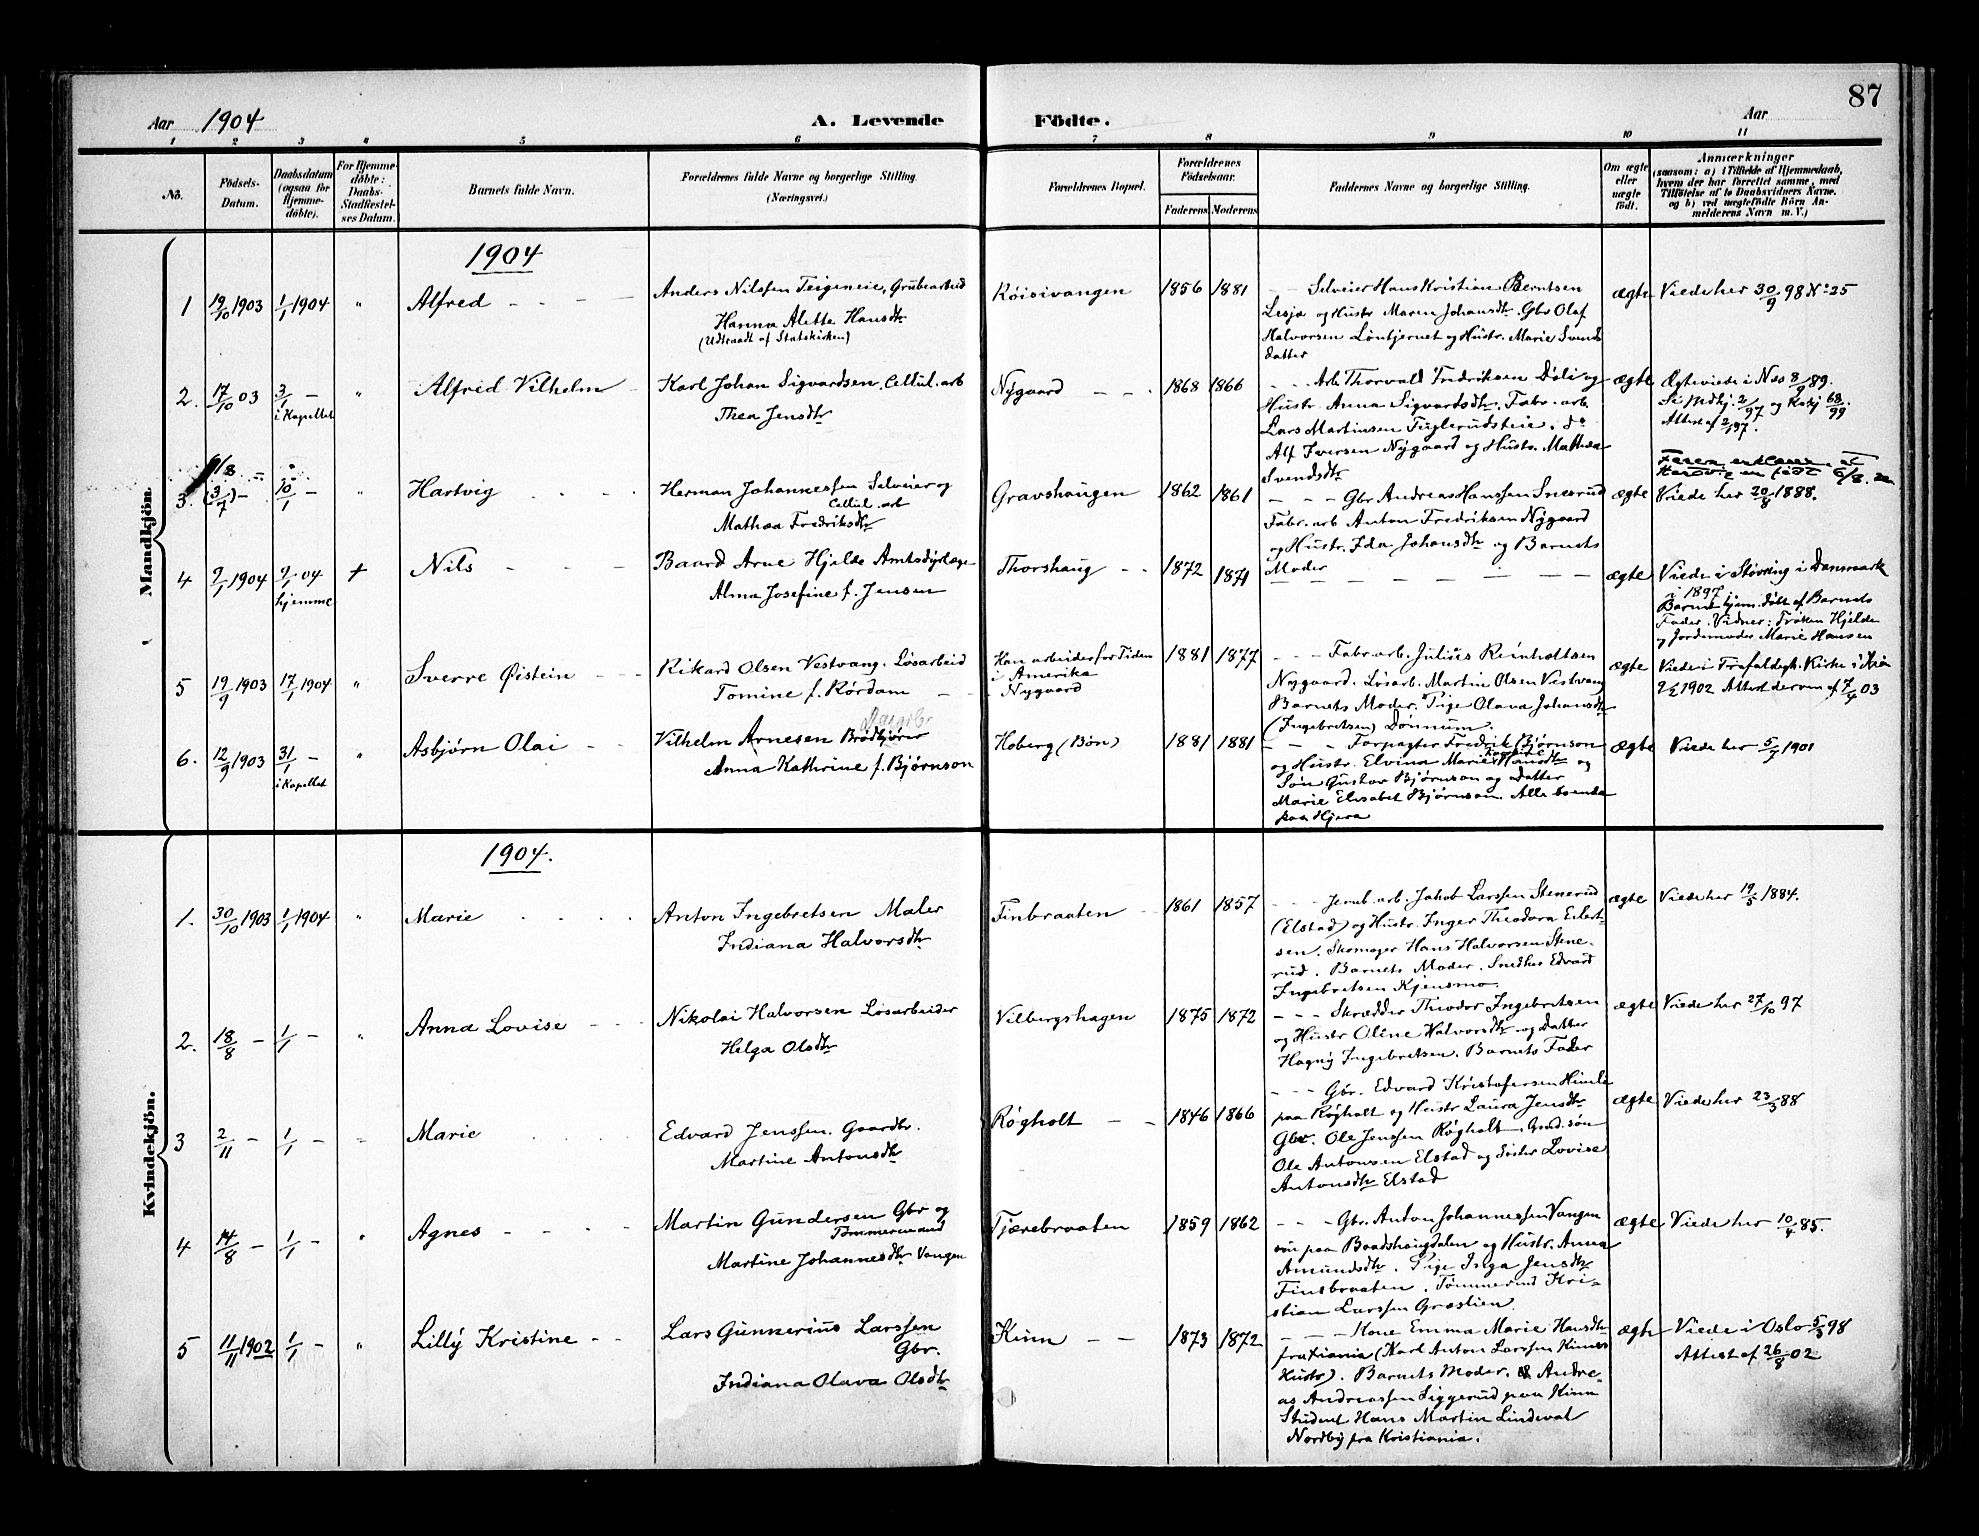 87
Aar 1904 A. Levende Födte. Aar
1 2 3 4 5 6 7 8 9 10 11
No.
Födsels-Datum.
Daabsdatum (ogsaa for Hjemme-döbte).
For Hjemme-döbte: Daabs-Stadfæstel-ses Datum.
Barnets fulde Navn.
Forældrenes fulde Navne og borgerlige Stilling. (Næringsvei.)
Forældrenes Bopæl.
Forældrenes Födselsaar.
Faderens Moderens
Faddernes Navne og borgerlige Stilling.
Om ægte eller uægte födt.
Anmærkninger
(saasom: a) i Tilfælde af Hjemmedaab,
hvem der har forrettet samme, med
Tilföielse af to Daabsvidners Navne,
og b) ved uægtefödte Börn An-
melderens Navn m. V.)
Mandkjön.
1904
1 19/10 1903 1/1 1904 " Alfred
Anders Nilssen Teigeneie, Grubearbeid
Hanna Alette Hansdtr
(Udtraadt af Statskirken)
Röisivangen 1856 1881
Selveier Hans Kristian Berntsen
Lesja og Hustr Maren Johansdtr. Gbr Olaf
Halvorsen Löntjernet og Hustr. Marie Svends
datter
ægte Viede her 30/9 98 No 25
2. 17/10 03 3/1 — i Kapellet " Alfred Vilhelm
Karl Johan Sigvardsen, Cellul. arb
Thea Jensdtr
Nygaard 1868 1866
Arb. Thorvald Fredriksen Döli og
Hustr. Anna Sigvardsdtr. Fabr. arb.
Lars Martinsen Fuglerudsteie. do
Alf Iversen Nygaard og Hustr. Mathea
Svendsdtr
ægte Ægteviede i Næs 8/9 89.
Attest af 2/1 97.
3. 6/8 (3/7) — 10/1 — " Hartvig
Herman Johannessen Selveier og
Cellul. arb
Mathea Fredriksdtr
Gravshaugen 1862 1861
Gbr Andreas Hanssen Snesrud
Fabr. arb Anton Fredriksen Nygaard
og Hustr. Ida Johansdtr og Barnets
Moder
ægte
Faren erklærer, at
Hartvig er födt 6/8
Viede her 20/8 1888.
4 9/1 1904 9/1 04 hjemme + Nils
Baard Arne Hjelde Amtsdyrlæge
Alma Josefine f. Jensen
Thorshaug 1872 1871
ægte Viede i Støvring i Danmark
i 1897
Barnet hjem. døbt af Barnets
Fader. Vidner: Frøken Hjelde
og Jordemoder Marie Hansen
5 19/9 1903 17/1 1904 " Sverre Øistein
Rikard Olsen Vestvang. Løsarbeid
Tomine f. Rördam
Han arbeider for Tiden
i Amerika
Nygaard
1881 1877
Fabr. arb. Julius Reinholtsen
Nygaard. Løsarb. Martin Olsen Vestvang
Barnets Moder. Pige Olava Johansdtr
(Ingebretsen) Dønnum.
ægte Viede i Trefoldigh. Kirke i Kria
1902 Attest derom af 7/4 03
6. 12/9 1903 31/1 — i Kapellet " Asbjørn Olai
Dagarb.
Vilhelm Arnesen Brödkjører
Anna Kathrine f. Bjørnson
Hoberg (Bön) 1881 1881
Forpagter Fredrik Bjørnson
og Hustr. Elvina Marie Hansdtr og
Søn Gustav Bjørnson og Datter
Marie Elisabet Bjørnson. Alle boende
paa Hjera
ægte Viede her 5/7 1901
Kvindekjön.
1904.
1. 30/10 1903 1/1 1904 " Marie
Anton Ingebretsen Maler
Indiana Halvorsdtr
Finbraaten 1861 1857
Jernb. arb. Jakob Larssen Stenerud
(Elstad) og Hustr. Inger Theodora Eilert-
sen. Skomager Hans Halvorsen Stene-
rud. Barnets Moder. Snedker Edvard
Ingebretsen Kjensmo
ægte Viede her 19/5 1884.
2. 18/8 — 1/1 — " Anna Lovise
Nikolai Halvorsen Løsarbeider
Helga Olsdtr
Vilbergshagen 1875 1872
Skrædder Theodor Ingebretsen
og Hustr Oline Halvorsdtr og Datter
Hagny Ingebretsen. Barnets Fader
ægte Viede her 27/10 97
3 2/11 — 1/1 — " Marie
Edvard Jenssen. Gaardbr.
Martine Antonsdtr
Røgholt 1846 1866
Gbr. Edvard Kristofersen Himli
paa Røgholt og Hustr Laura Jensdtr
Gbr. Ole Jenssen Røgholt. Grd.søn
Ole Antonsen Elstad og Søster Lovise
Antonsdtr Elstad
ægte Viede her 23/3 88
4 14/8 — 1/1 — " Agnes
Martin Gundersen Gbr og
Tømmermand
Martine Johannesdtr Vangen
Tjærebraaten 1859 1862
Gbr. Anton Johannessen Vangen
eie paa Baadshaugdalen og Hustr. Anna
Amundsdtr. Pige Inga Jensdtr
Finsbraaten. Tömmermd Kri-
stian Larssen Græslien
ægte Viede her 10/4 85.
5 11/11 1902 1/1 — " Lilly Kristine
Lars Gunnerius Larssen
Gbr.
Indiana Olava Olsdtr
Kinn 1873 1872
Kone Emma Marie Hansdtr
fra Xiania (Karl Anton Larssen Kinnes
Hustr). Barnets Moder. Andre-
as Andreassen Liggerud paa Kinn
Student Hans Martin Lindeval
Nordby fra Kristiania.
ægte Viede i Oslo 5/3 98
Attest af 26/8 02